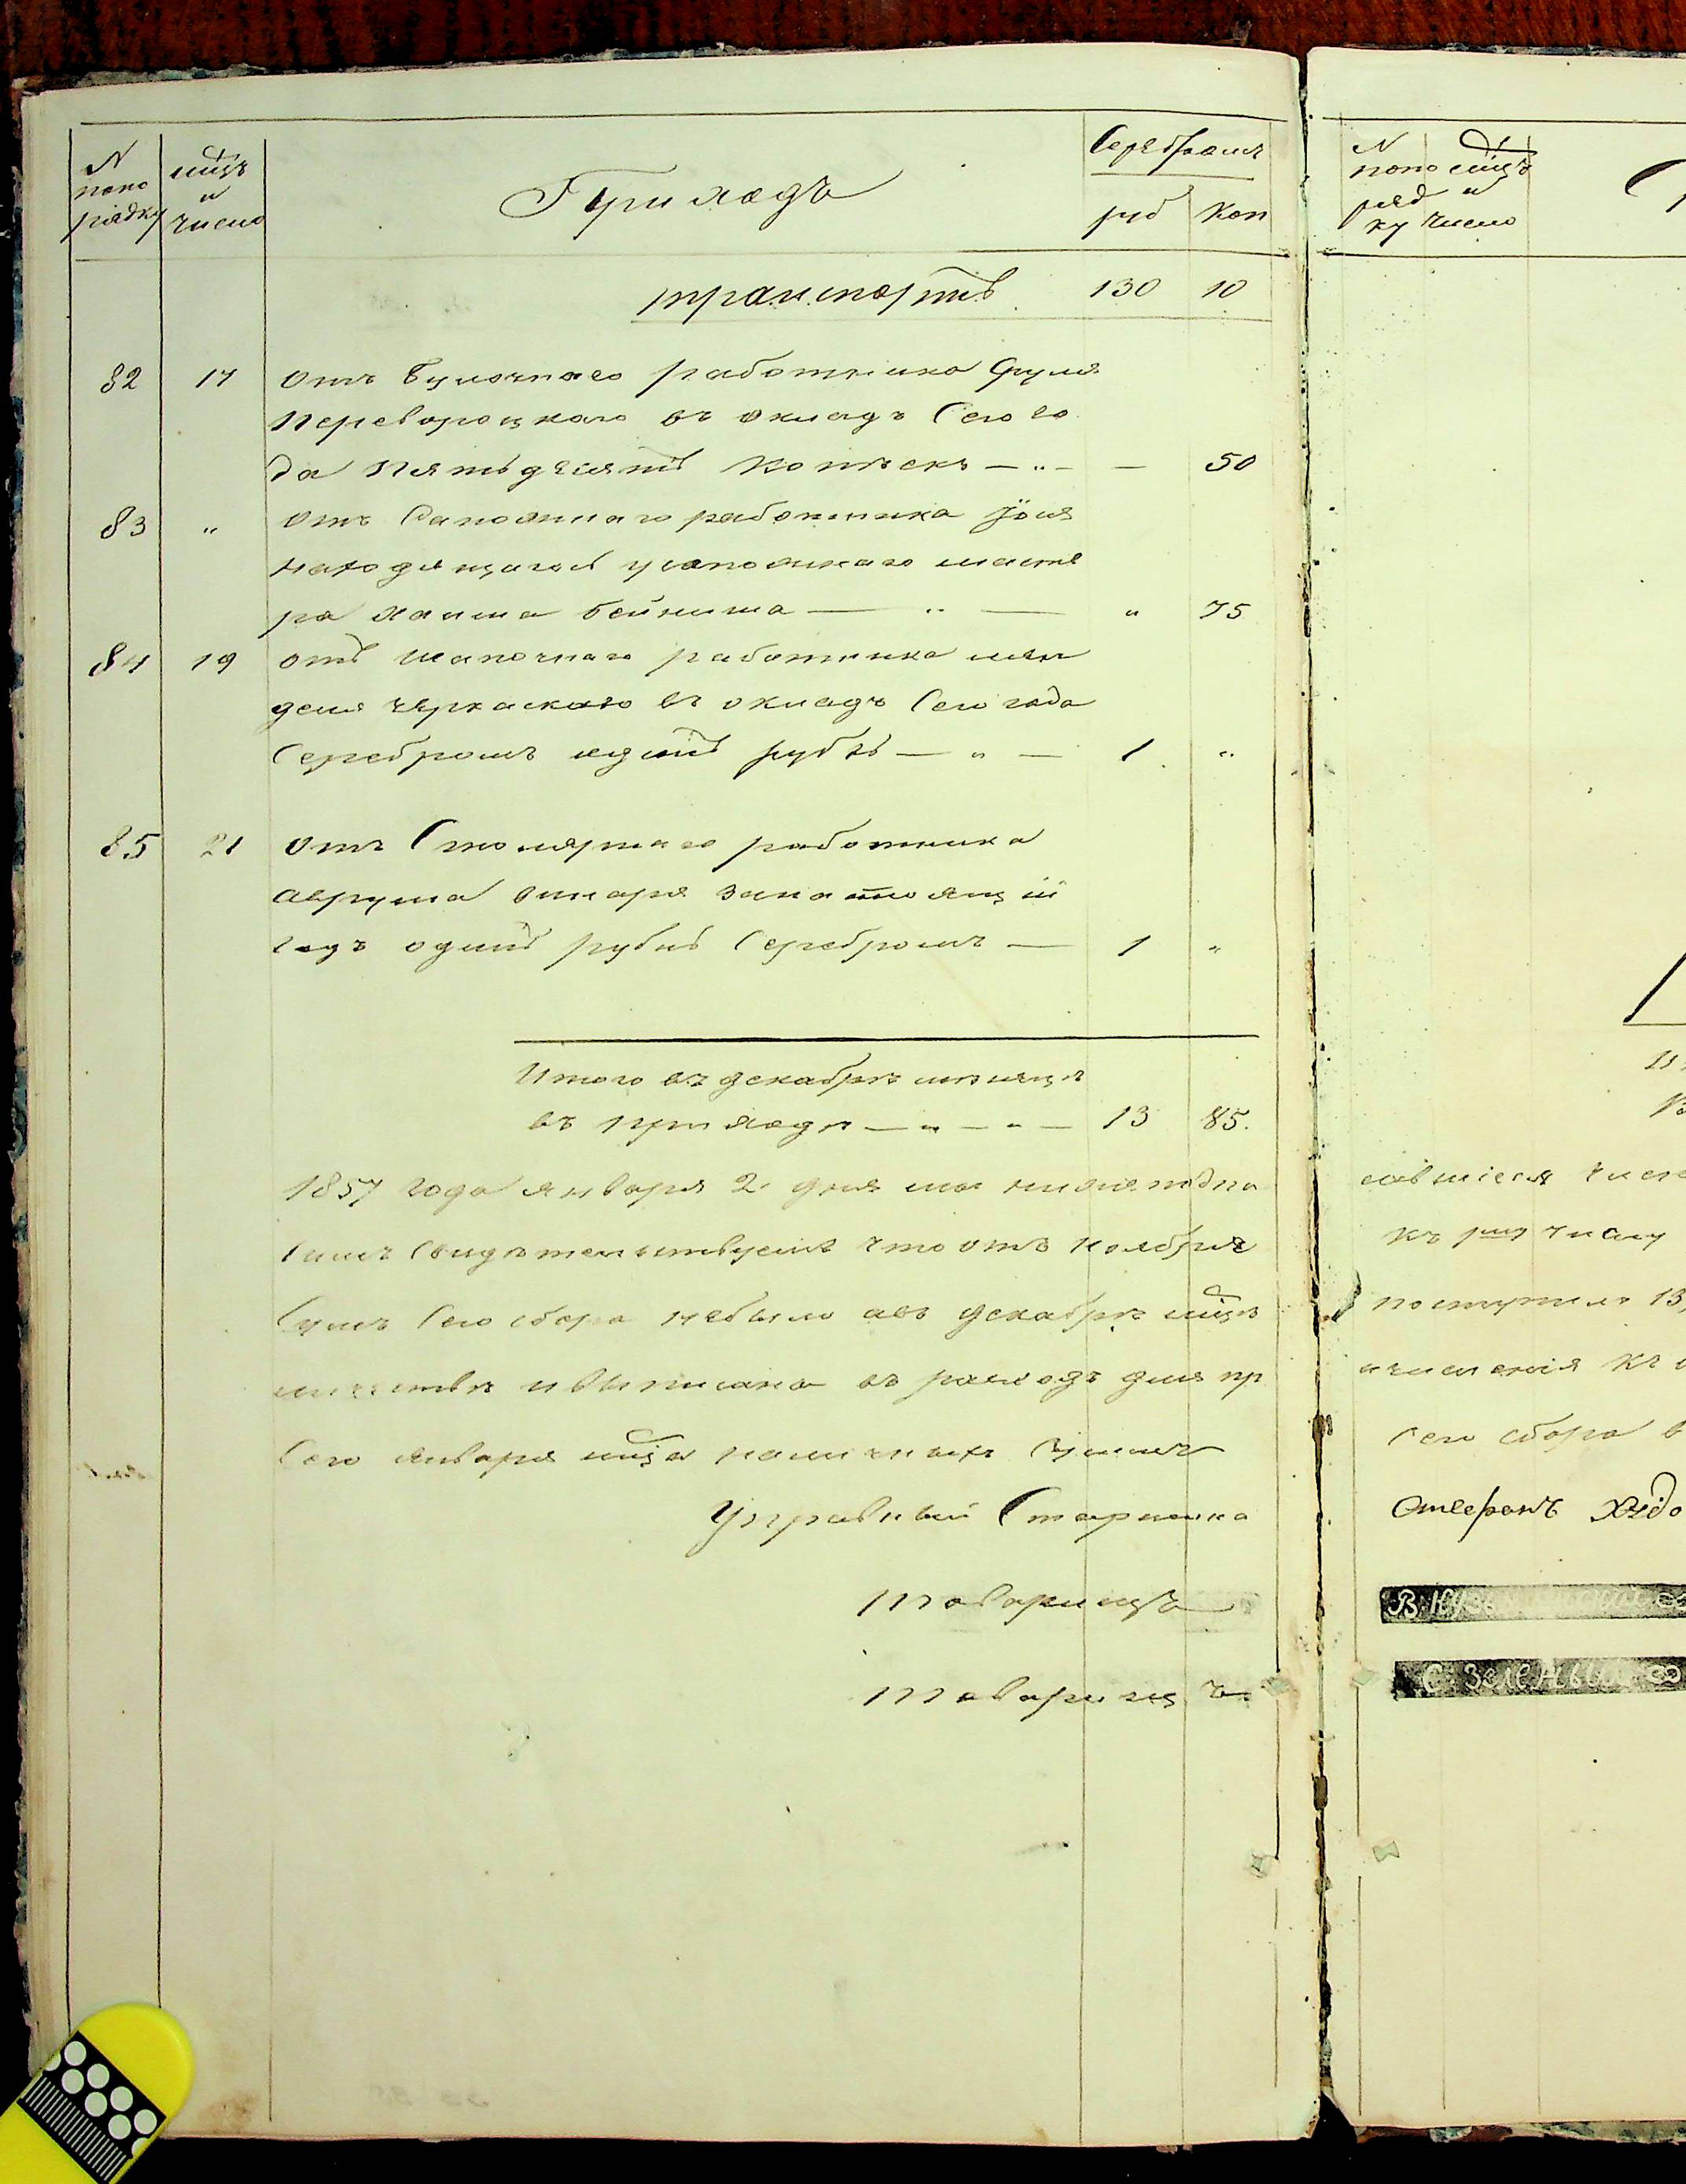 N
попо
рядку
мцъ
и
число
Приходъ
Серебромъ
руб коп
транспортъ 130 10
82 17 отъ булочнаго работника Фуля
Перевороцкаго въ окладъ Сего го
да Пятьдесятъ копѣекъ — „ — — 50
83 „ отъ Сапожнаго работника Іоля
находящагося усапожнаго масте
ра Хаима Бейниша — „ — „ 75
84 19 отъ шапочнаго работника мен
деля черкаскаго въ окладъ Сего года
Серебромъ одинъ рубль — „ — 1 „
85 21 отъ Столярнаго работника
аврума винаря занастоящій
годъ одинъ рубль Серебромъ — 1 „
Итого въ декабрѣ мѣсяцѣ
въ приходѣ — „ — „ — 13 85.
1857 года января 2 дня мы нижеподпи
свидѣтельствуемъ что отъ ноября
Сумъ Сего сбора небыло авъ декабрѣ мцѣ
ивыписано въ расходъ для пр
Сего января мца наличныхъ Суммъ
Управный Старшина
товарищъ
товарищъ
N
попо
ряд
ку
мцъ
и
число
савшіеся числ
къ числу
поступило 13,
исчисленія къ
Сего сбора в
Стефанъ
С. Зеленый